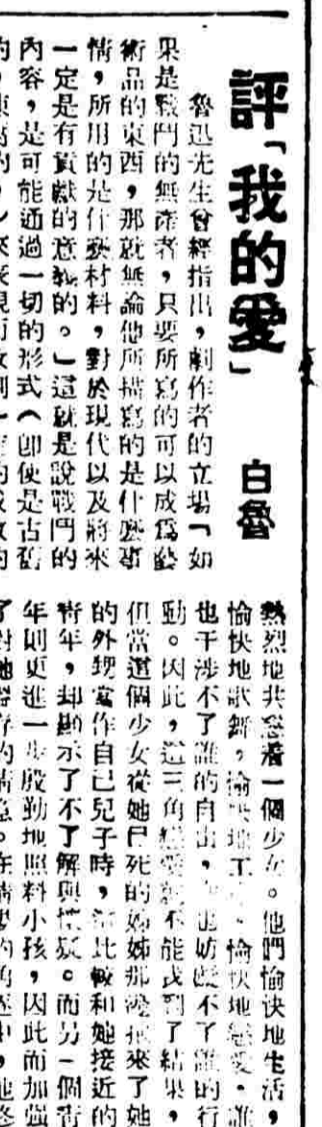 評「我的愛」
白魯
魯迅先生曾經指出，創作者的立場「如
果是戰鬥的無產者，只要所寫的可以成爲藝
術品的東西，那就無論他所描寫的是什麼事
情，所用的是什麼材料，對於現代以及將來
一定是有貢獻的意義的。」這就是說戰鬥的
內容，是可能通過一切的形式（即使是古舊
熱烈地共戀着一個少女。他們愉快地生活，
愉快地歌舞，愉快地工作，愉快地戀愛，誰
也干涉不了誰的自由，也妨礙不了誰的行
動。因此，這三角戀愛就不能找到了結果，
但當這個少女從她已死的姊姊那裡抱來了她
的外甥當作自己兒子時，比較和她接近的
青年，却顯示了不了解與懷疑。而另一個青
年則更進一步殷勤地照料小孩，因此而加強